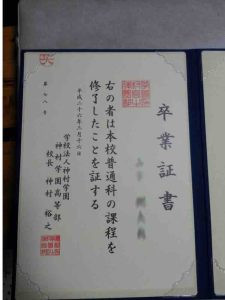 卒業証書
右の者は本校普通科の課程を
修了したことを証する
平成二十六年三月十六日
学校法人神村学園
神村学園高等部
校長 神村 裕之
第 七八 号